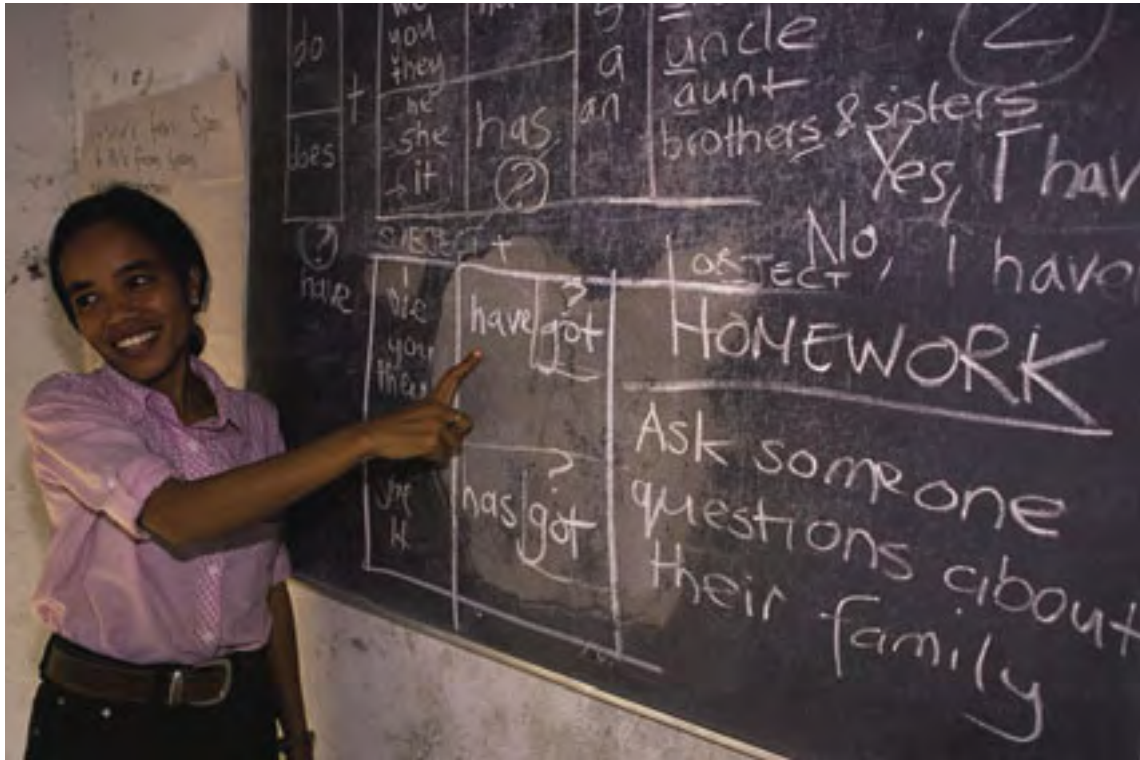 we
you
they
do
+
he
she
→ it
does
has
?
a
an
uncle
aunt
brothers & sisters
2
Yes, I hav
No, I have
?
have
SUBJECT +
OBJECT
I
we
you
they
have got
?
she
it
has got
?
HOMEWORK
Ask someone
questions about
their family